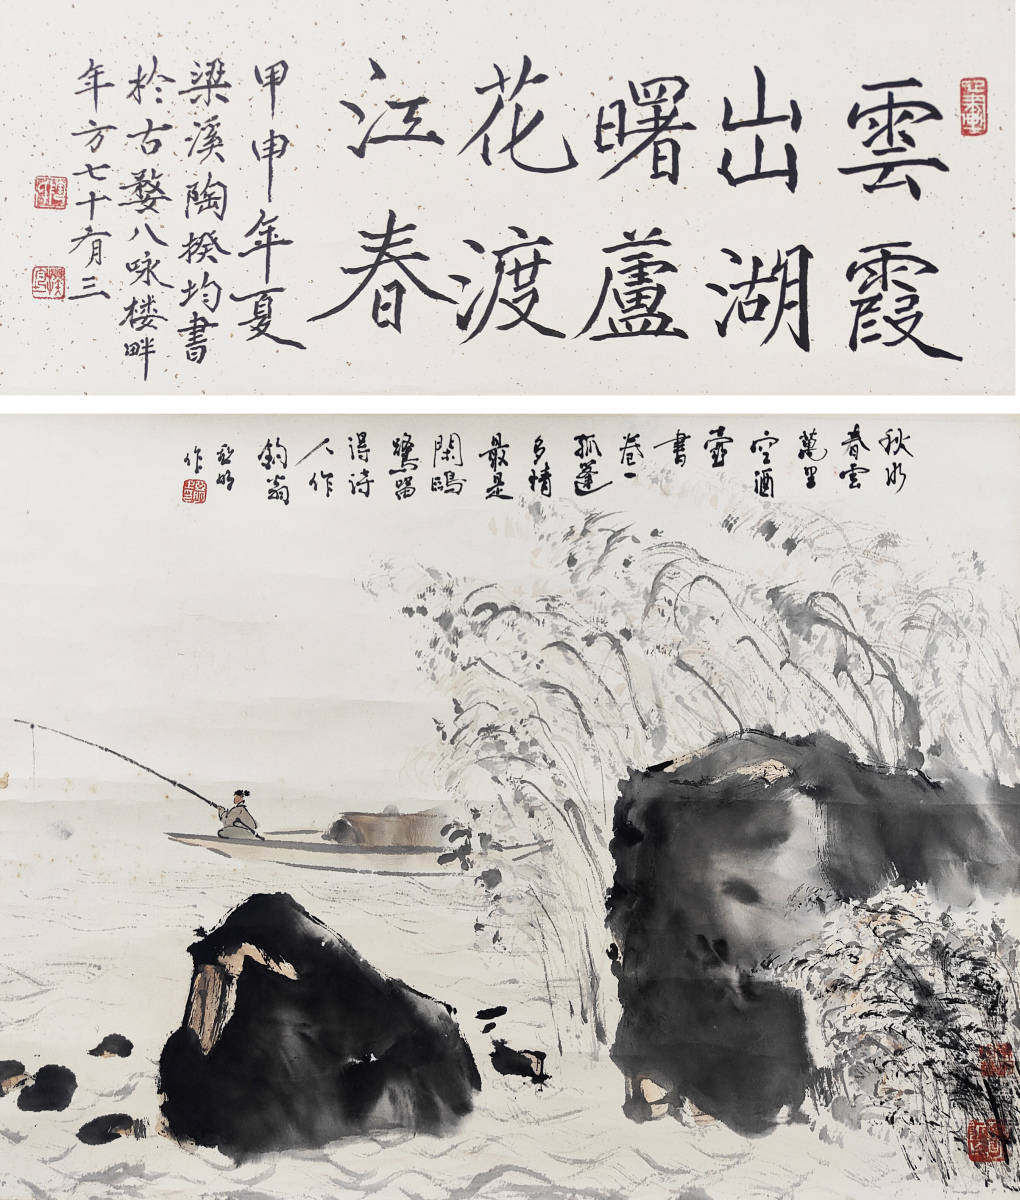 雲霞
出湖
曙蘆
花渡
江春
甲申年夏
梁溪陶揆均書
於古婺八咏楼畔
年方七十有三
秋水
春雲
萬里
空酒
壺
書
卷一
孤蓬
多情
最是
閑鷗
鷺留
得詩
人作
釣翁
亚明
作